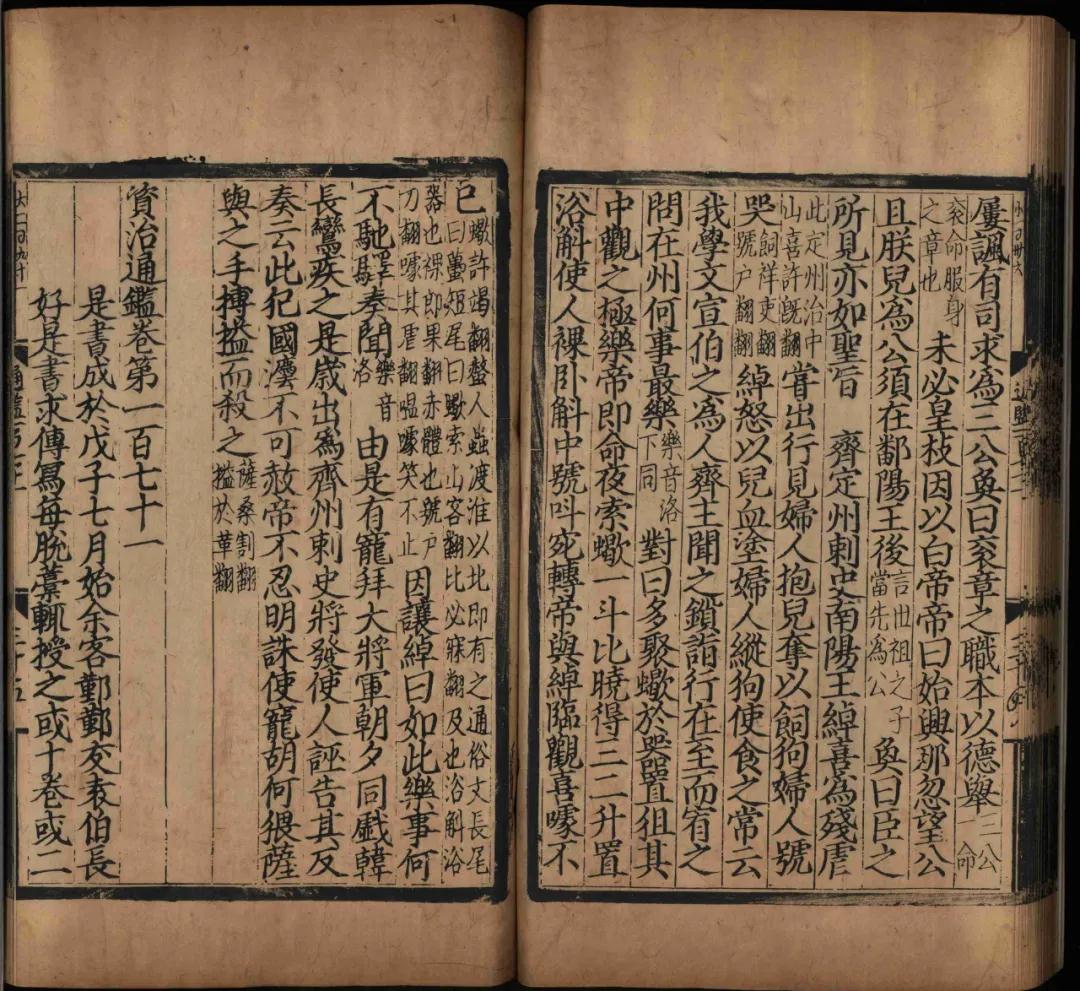 屢諷有司求爲三公奐曰衮章之職本以德舉三公命
衮命服身之章也未必皇枝因以白帝帝曰始興那忽望公
且朕兒爲公須在鄱陽王後言世祖之子當先爲公奐曰臣之
所見亦如聖旨 齊定州刺史南陽王綽喜爲殘虐
此定州治中山喜許旣翻嘗出行見婦人抱兒奪以飼狗婦人號
哭飼祥吏翻號户翻翻綽怒以兒血塗婦人縱狗使食之常云
我學文宣伯之爲人齊王聞之鎖詣行在至而宥之
問在州何事最樂樂音洛下同對曰多聚蠍於器置狙其
中觀之極樂帝即命夜索蠍一斗比曉得三二升置
浴斛使人裸卧斛中號叫宛轉帝與綽臨觀喜噱不
已蠍許竭翻螫人蟲渡淮以北即有之通俗文長尾曰蠆短尾曰蠍索山客翻比必寐翻及也浴斛浴
器也裸即果翻赤體也號户刀翻噱其虐翻嗢噱笑不止因讓綽曰如此樂事何
不馳驛奏聞樂音洛由是有寵拜大將軍朝夕同戲韓
長鸞疾之是歲出爲齊州刺史將發使人誣告其反
奏云此犯國灋不可赦帝不忍明誅使寵胡何猥薩
與之手搏搤而殺之薩桑割翻搤於革翻
資治通鑑卷第一百七十一
是書成於戊子七月始余客鄞鄞友袁伯長
好是書求傳寫每脫藁輒授之或十卷或二